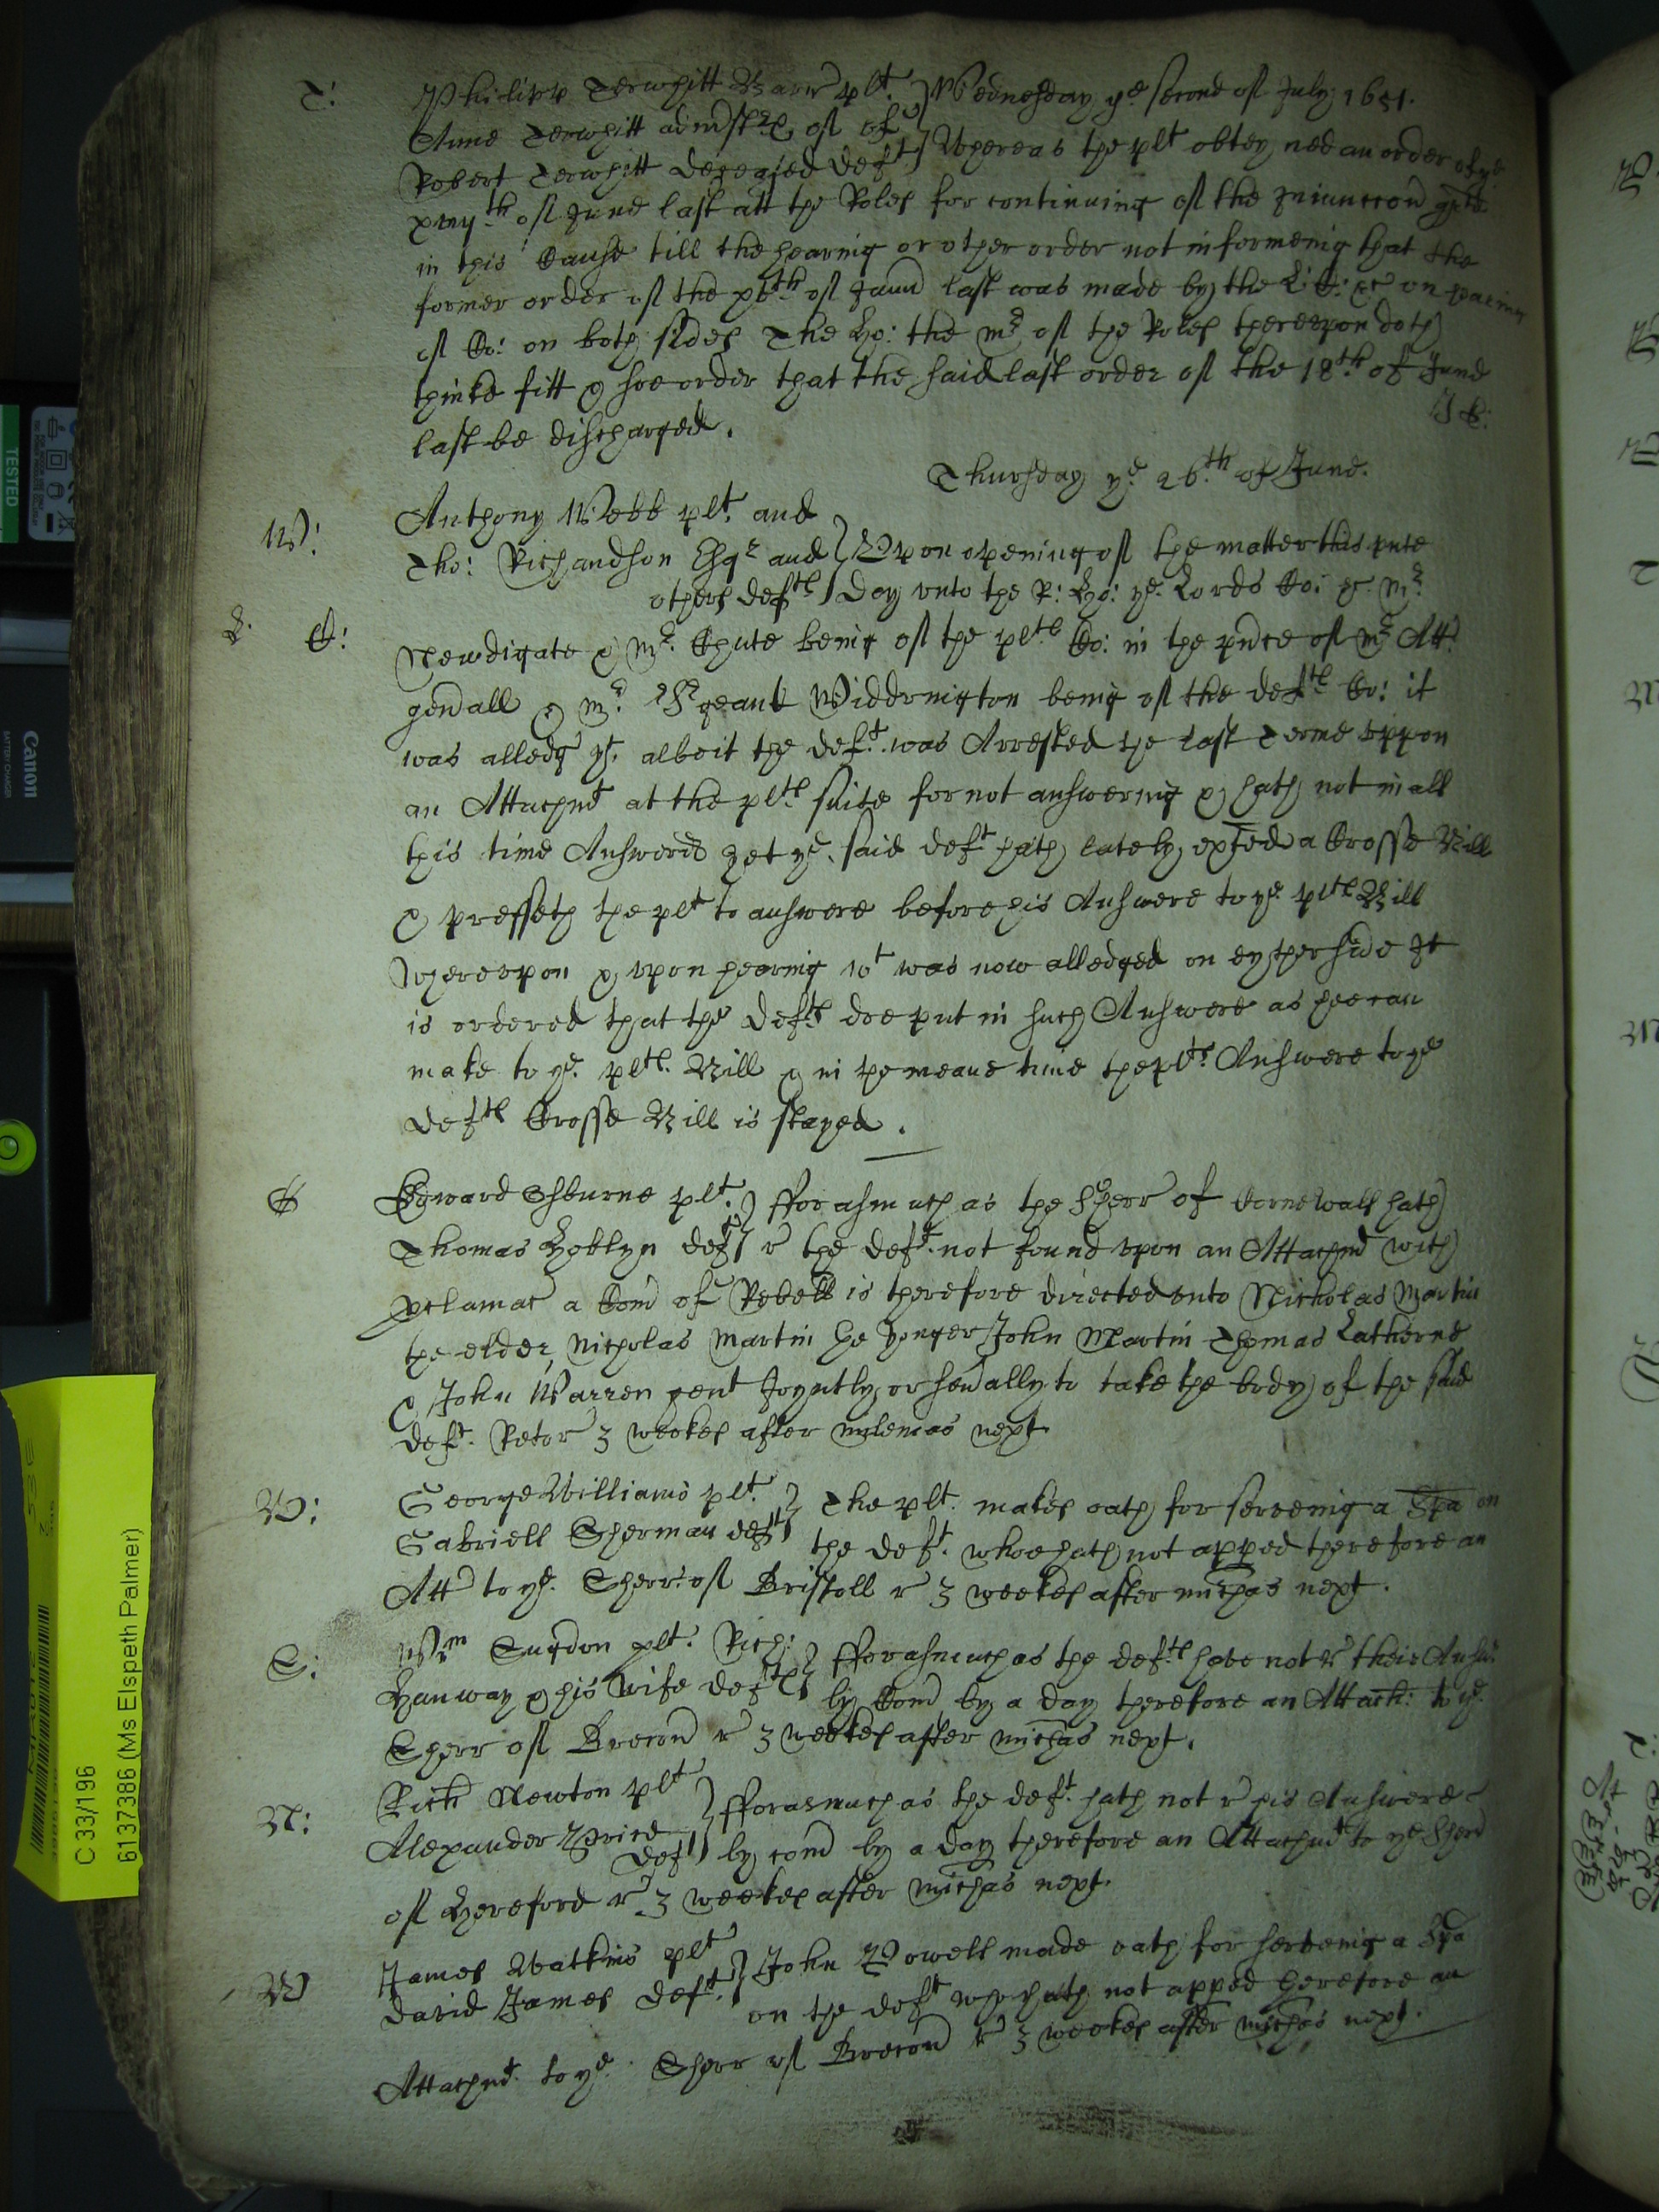 T:
Philipp Terwhitt Barr plt. Wednesday ye second of July 1651.
Anne Terwhitt admstrx of of
Robert Terwhitt deceased deft Whereas the plt obteyned an order of ye
xviijth of June last att the Roles for continuing of the Iniunccon
in this Cause till the hearing or other order not informeing that the
former order of the xvth of last was made by the on
of Co: on both sides The Ho: the mr of the Roles thereupon doth
thinke fitt & soe order that the said last order of the 18th of June
last be discharged.
Thursday ye 26th of June.
W:
Anthony Webb plt. and
Tho: Richardson Esqr and Upon opening of the matter this pnte
others defts day unto the R: Ho: ye Lords Co: &. mr
C:
Newdigate & mr. Chute being of the plts Co: in the pnce of mr Att
genall & mr. Sgeant Widdrington being of the defts Co: it
was alledg yt. albeit the deft. was Arrested the last Terme uppon
an Attachmt at the plts suite for not answering & hath not in all
this time Answered yet ye. said deft hath lately exhed a Crosse Bill
& presseth the plt to answere before his Answere to ye plts Bill
Whereupon & upon hearing wt was now alledged on eyther side It
is ordered that the defts doe put in such Answere as hee can
make to ye. plts. Bill & in the meane time the plts Answere to ye
defts Crosse Bill is stayed.
Edward Osburne plt. fforasmuch as the Sherr of Cornewall hath
Thomas Hoblyn deft r the deft. not found upon an Attachmt with
pclamac a Com of Rebell is therefore directed unto Nicholas Martin
the elder Nicholas Martin the yonger John Martin Thomas Latherne
& John Warren gent Joyntly or sevally to take the body of the said
deft. Retor 3 weekes after next.
W:
George Williams plt. The plt. makes oath for serveing a Spa on
Gabriell Sherman deft the deft. whoe hath not apped therefore an
Att to ye. Sherr of Bristoll r 3 weekes after michas next.
S:
Wm Sugdon plt. Rich: fforasmuch as the defts have not r their Answ
Hanway & his Wife defts by Com by a day therefore an Attach: to ye.
Sherr of Brecon r 3 weekes after michas next.
N:
Rich Newton plt fforasmuch as the deft. hath not r his Answere
Alexander Price
deft by com by a day therefore an Attachmt to ye Sherr
of Hereford r 3 weekes after michas next.
W
James Watkins plt John Powell made oath for serveing a Spa
David James deft. on the deft who hath not apped therefore an
Attachmt. to ye. Sherr of Brecon r 3 weekes after michas next.
TESTED
Canon
BATTERY CHARGER
C 33/196
6137386 (Ms Elspeth Palmer)